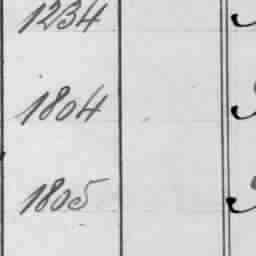 1234
1804
1805